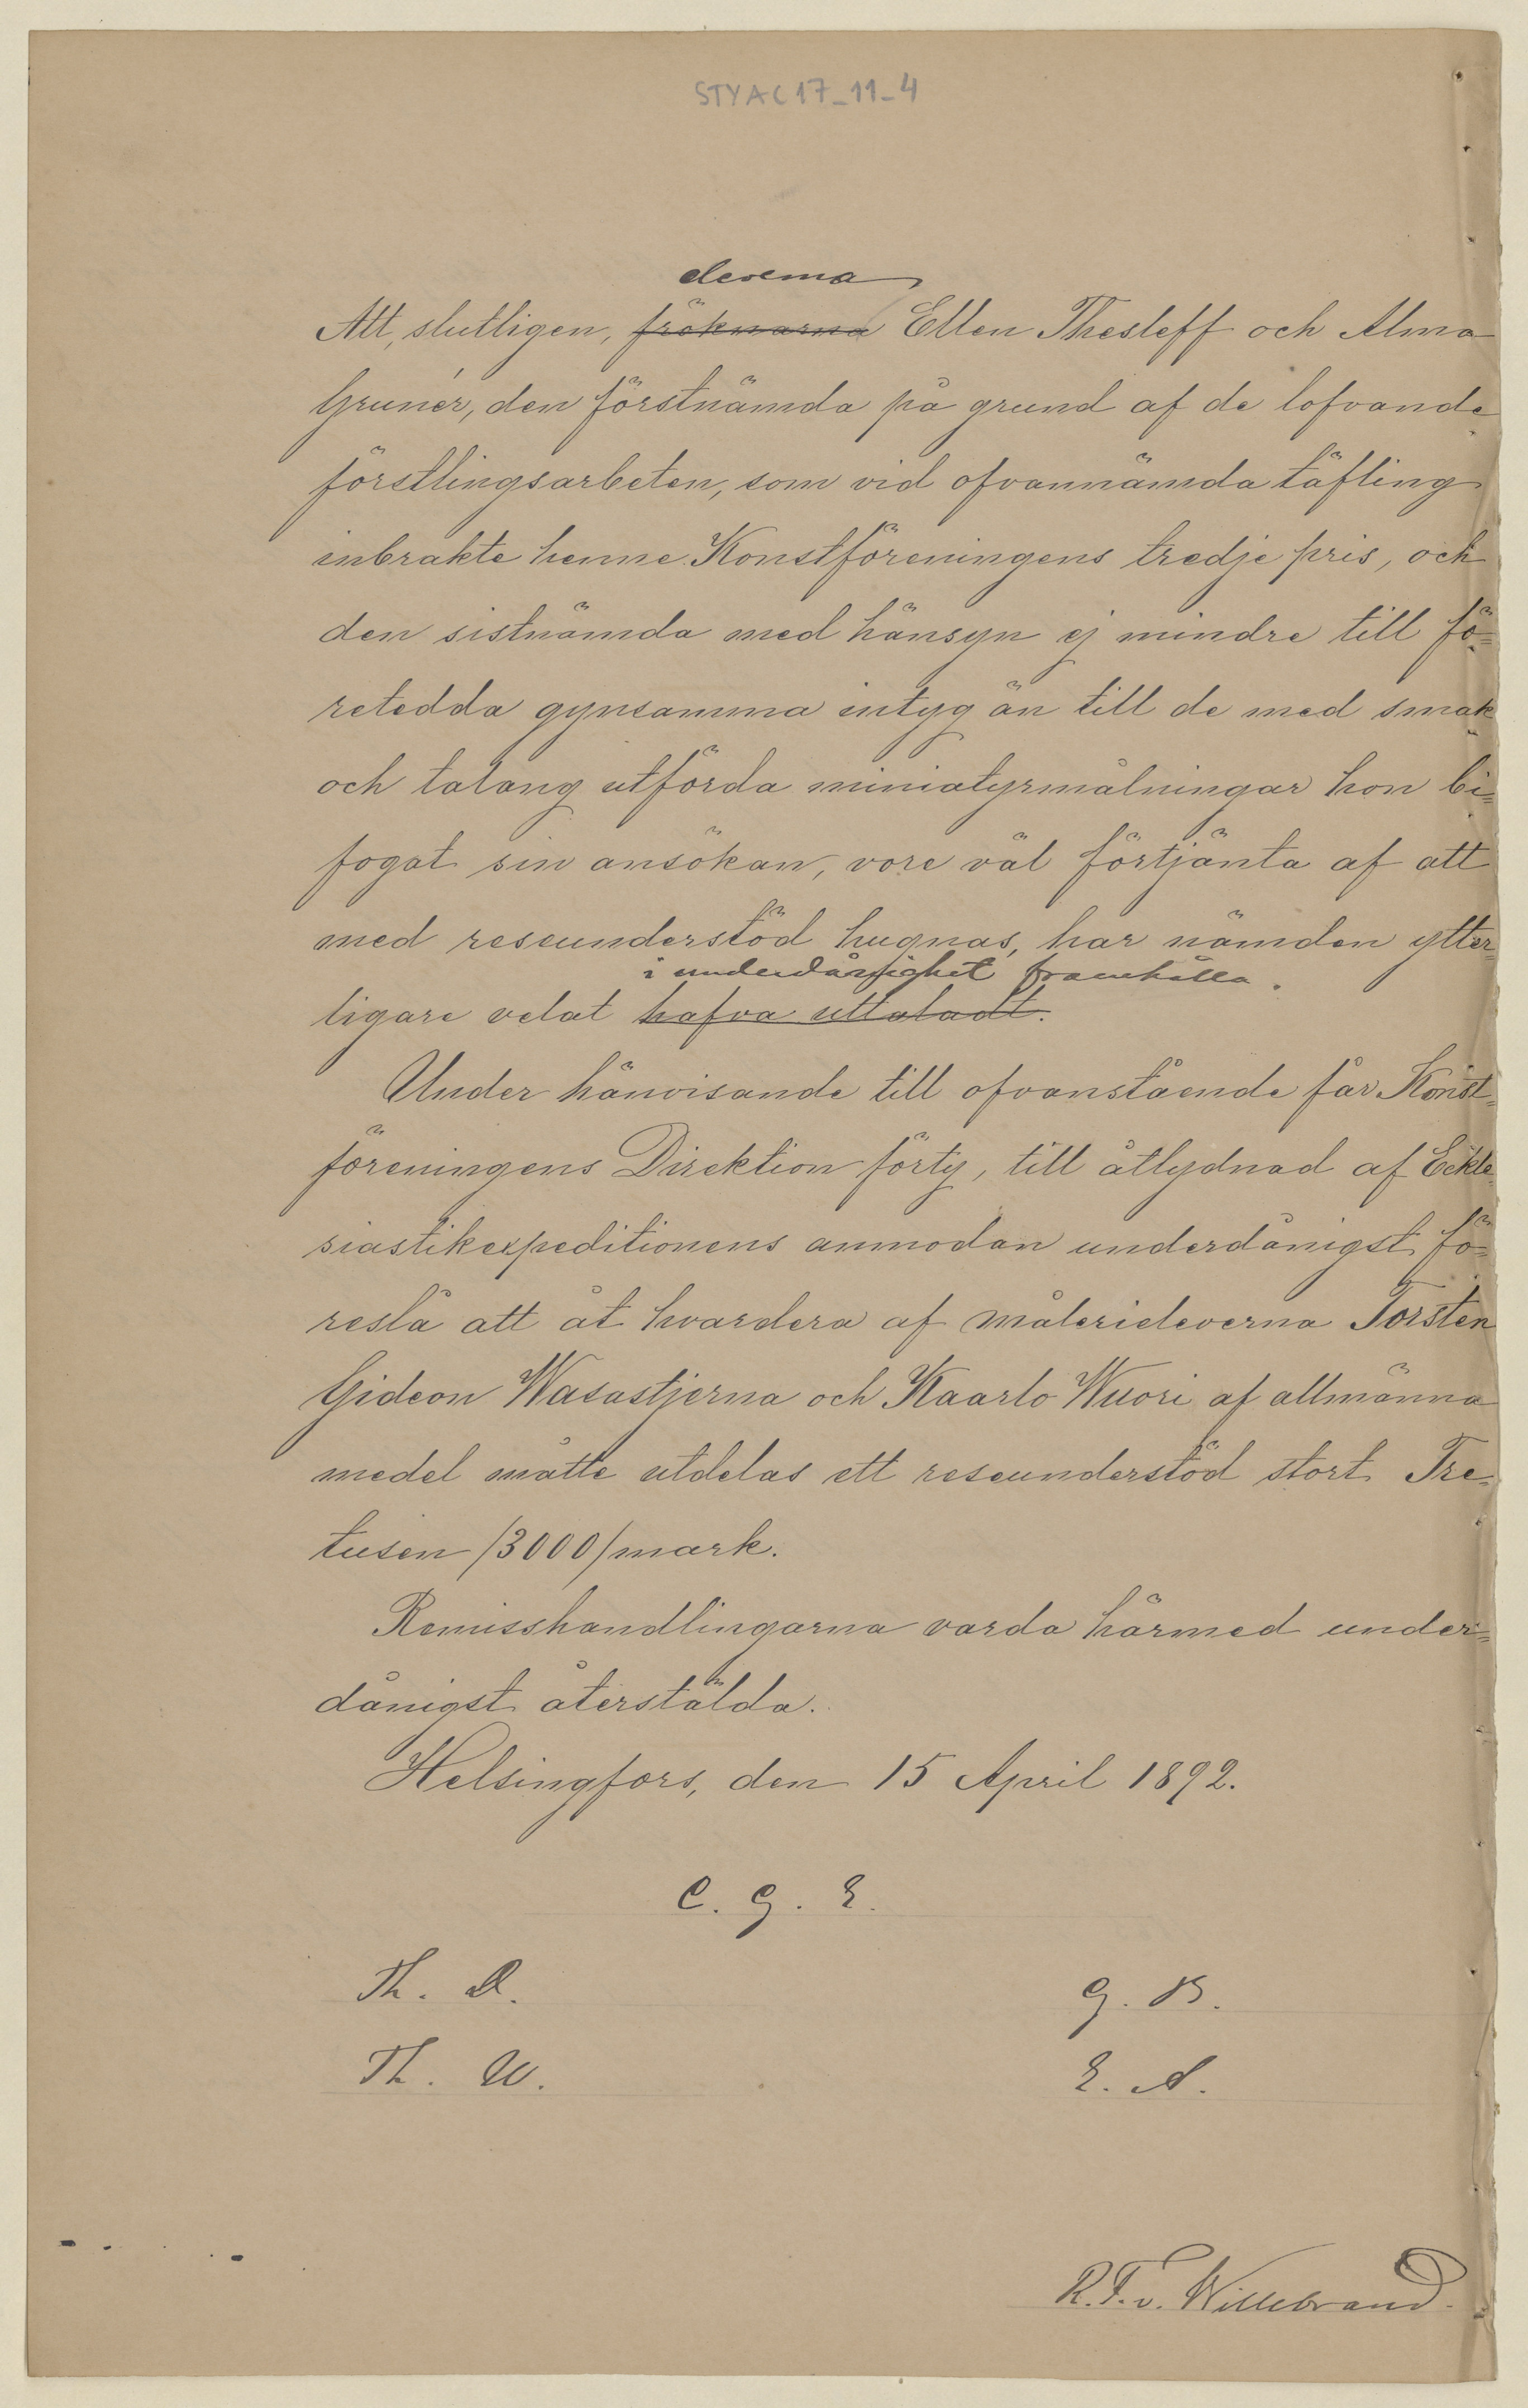 STYAC17_11_4
eleverna
Att, slutligen, fröknarna Ellen Thesleff och Alma
Grunér, den förstnämda på grund af de lofvande
förstlingsarbeten, som vid ofvannämda täfling
inbrakte henne Konstföreningens tredje pris, och
den sistnämda med hänsyn ej mindre till fö-
retedda gynsamma intyg än till de med smak
och talang utförda miniatyrmålningar hon bi-
fogat sin ansökan, vore väl förtjänta af att
med reseunderstöd hugnas, har nämden ytter-
i underdånighet framhålla.
ligare velat hafva uttaladt.
Under hänvisande till ofvanstående får Konst-
föreningens Direktion förty, till åtlydnad af Eckle-
siastikexpeditionens anmodan underdånigst fö-
reslå att åt hvardera af målerieleverna Torsten
Gideon Wasastjerna och Kaarlo Wuori af allmänna
medel måtte utdelas ett reseunderstöd stort Tre-
tusen /3000/ mark.
Remisshandlingarna varda härmed under-
dånigst återstälda.
Helsingfors, den 15 April 1892.
C. G. E.
Th. D. G. B.
Th. W. E. A.
R. F. v. Willebrand.